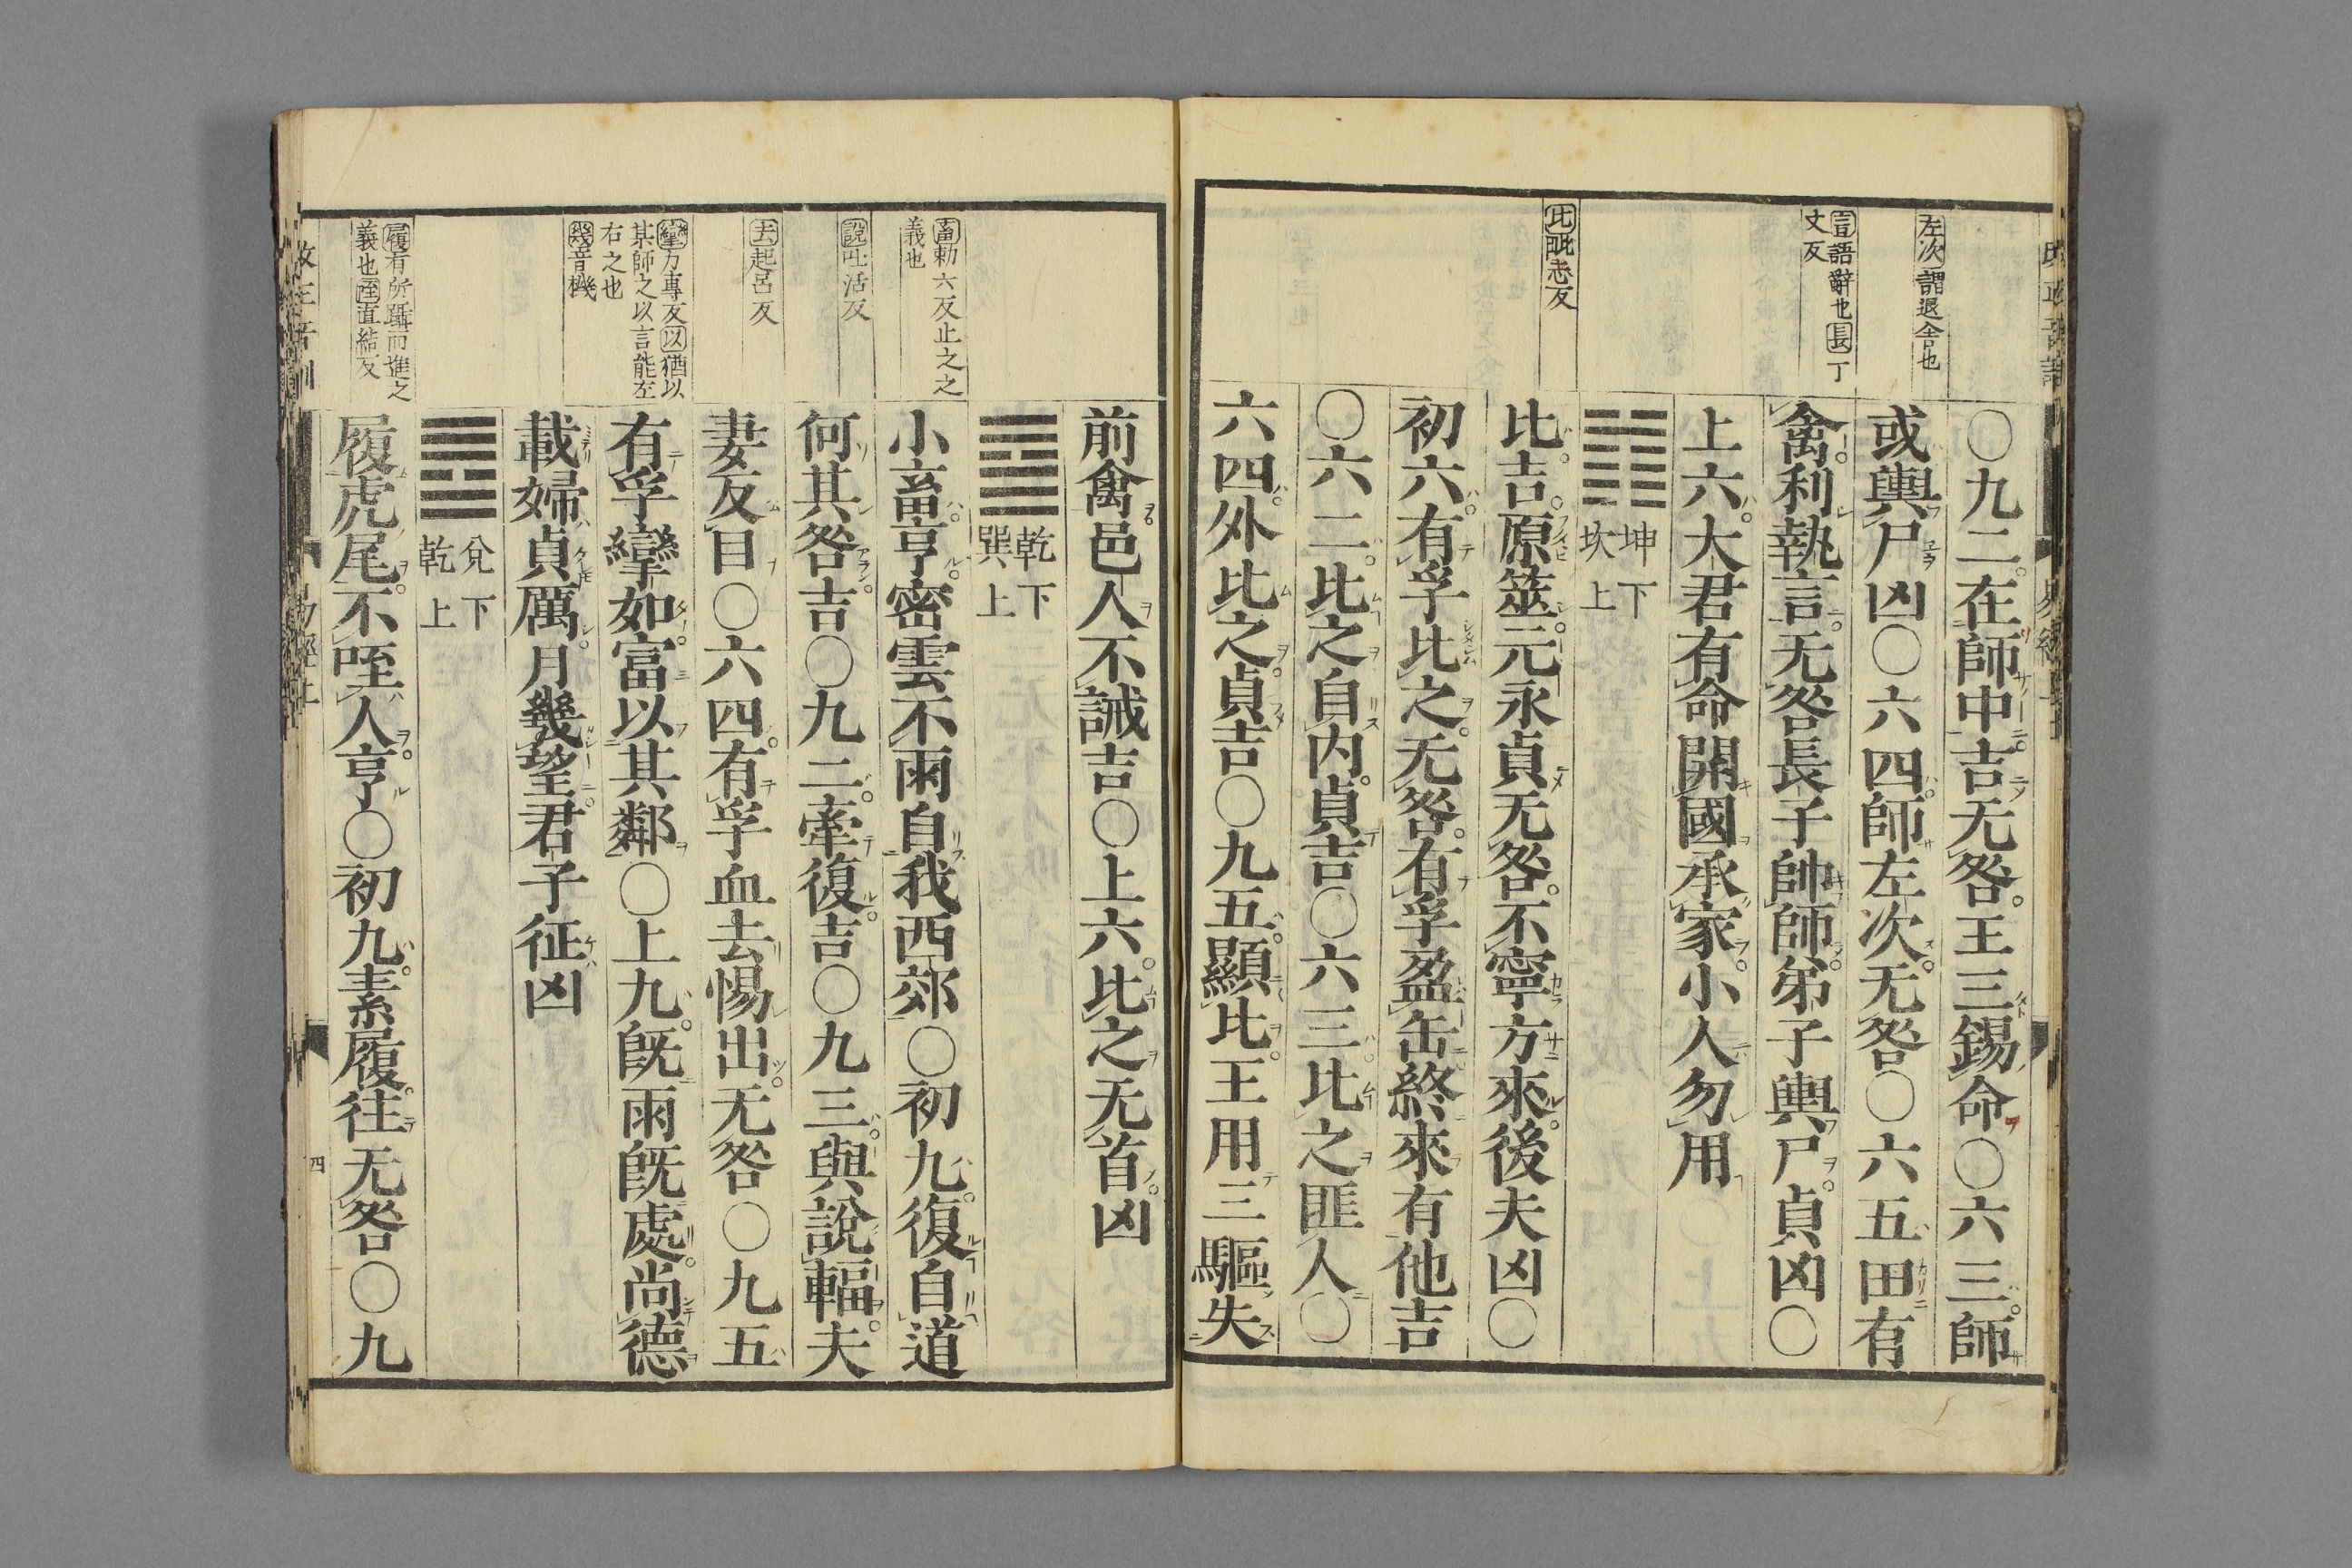 左次謂退舍也
言語辭也長丁
丈反
比毗志反
〇九二在師中吉无咎王三錫命〇六三師
或輿尸凶〇六四師左次无咎〇六五田有
禽利執言无咎長子帥師弟子輿尸貞凶〇
上六大君有命開國承家小人勿用
坤下
坎上
比吉原筮元永貞无咎不寧方來後夫凶〇
初六有孚比之无咎有孚盈缶終來有他吉
〇六二比之自内貞吉〇六三比之匪人〇
六四外比之貞吉〇九五顯比王用三驅失
畜勅六反止之之
義也
說吐活反
去起呂反
攣力專反以猶以
其師之以言能左
右之也
幾音機
履有所躡而進之
義也咥直結反
前禽邑人不誡吉〇上六比之无首凶
乾下
巽上
小畜亨密雲不雨自我西郊〇初九復自道
何其咎吉〇九二牽復吉〇九三輿說輻夫
妻反目〇六四有孚血去惕出无咎〇九五
有孚攣如富以其鄰〇上九既雨既處尚德
載婦貞厲月幾望君子征凶
兌下
乾上
履虎尾不咥人亨〇初九素履往无咎〇九
四